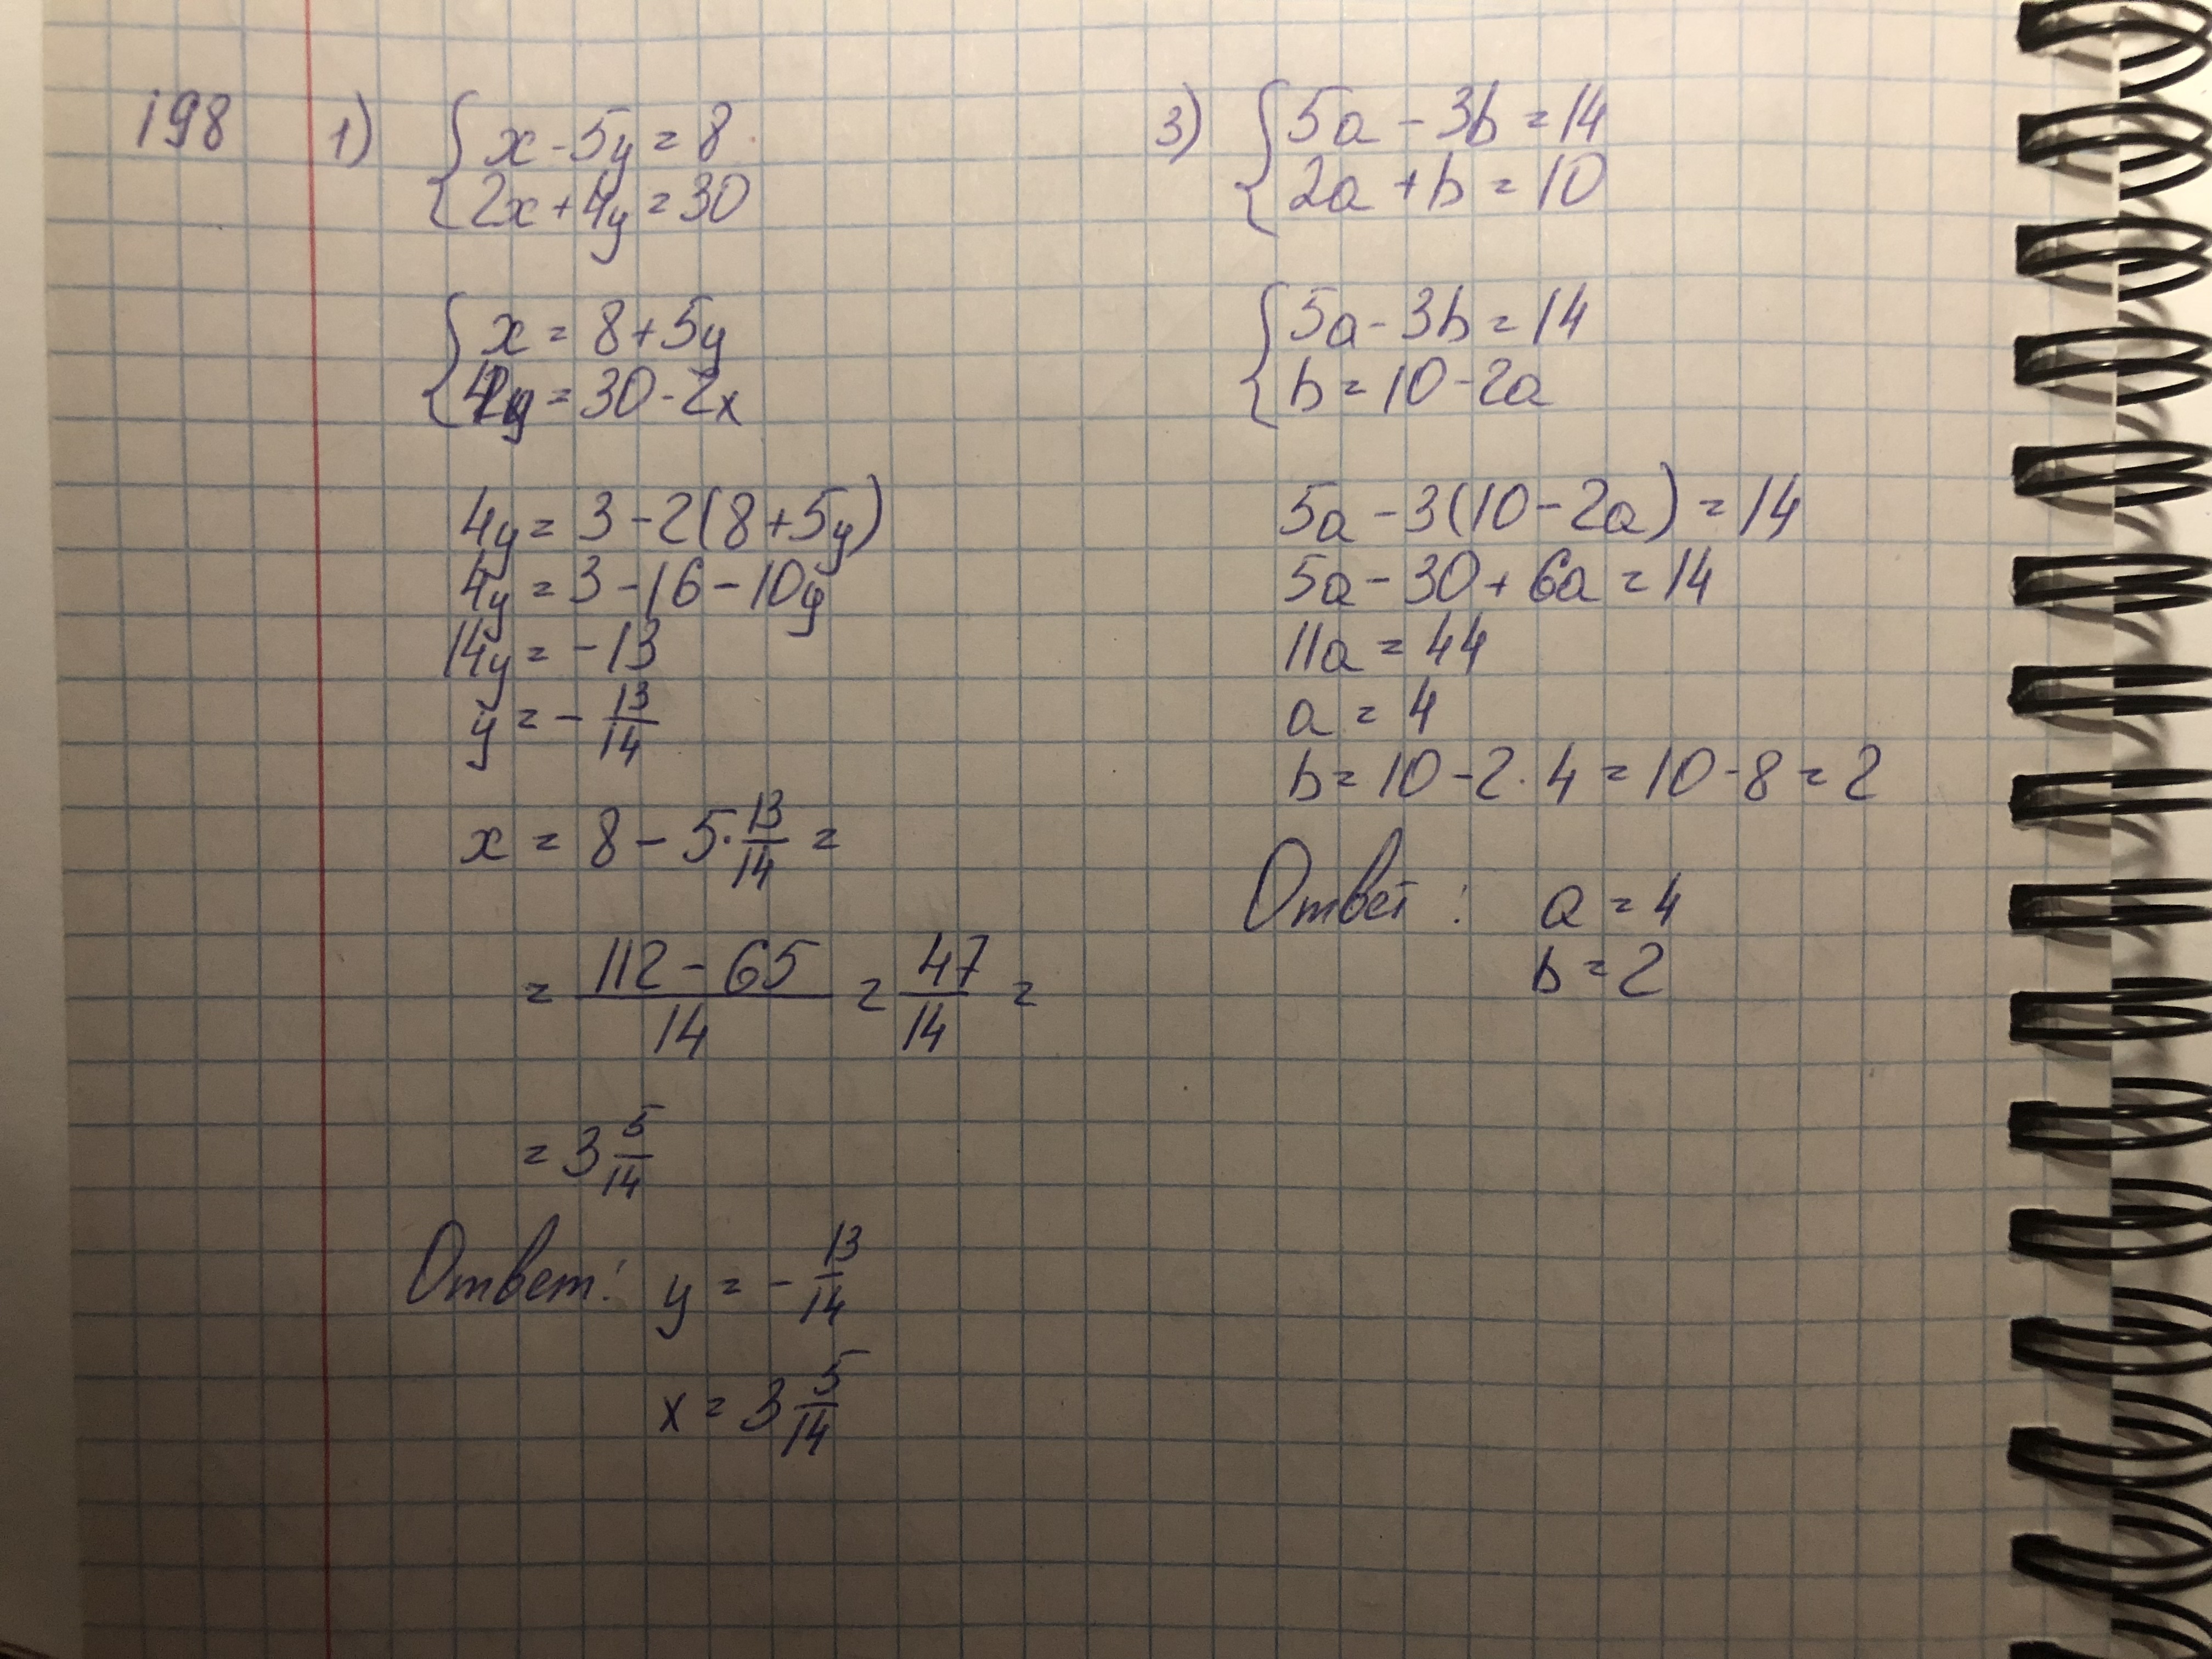 198
1) { x - 5y = 8
2x + 4y = 30
{ x = 8 + 5y
4y = 30 - 2x
4y = 3 - 2(8 + 5y)
4y = 3 - 16 - 10y
14y = -13
y = - 13/14
x = 8 - 5 · 13/14 =
= (112 - 65)/14 = 47/14 =
= 3 5/14
Ответ: y = - 13/14
x = 3 5/14
3) { 5a - 3b = 14
2a + b = 10
{ 5a - 3b = 14
b = 10 - 2a
5a - 3(10 - 2a) = 14
5a - 30 + 6a = 14
11a = 44
a = 4
b = 10 - 2 · 4 = 10 - 8 = 2
Ответ: a = 4
b = 2